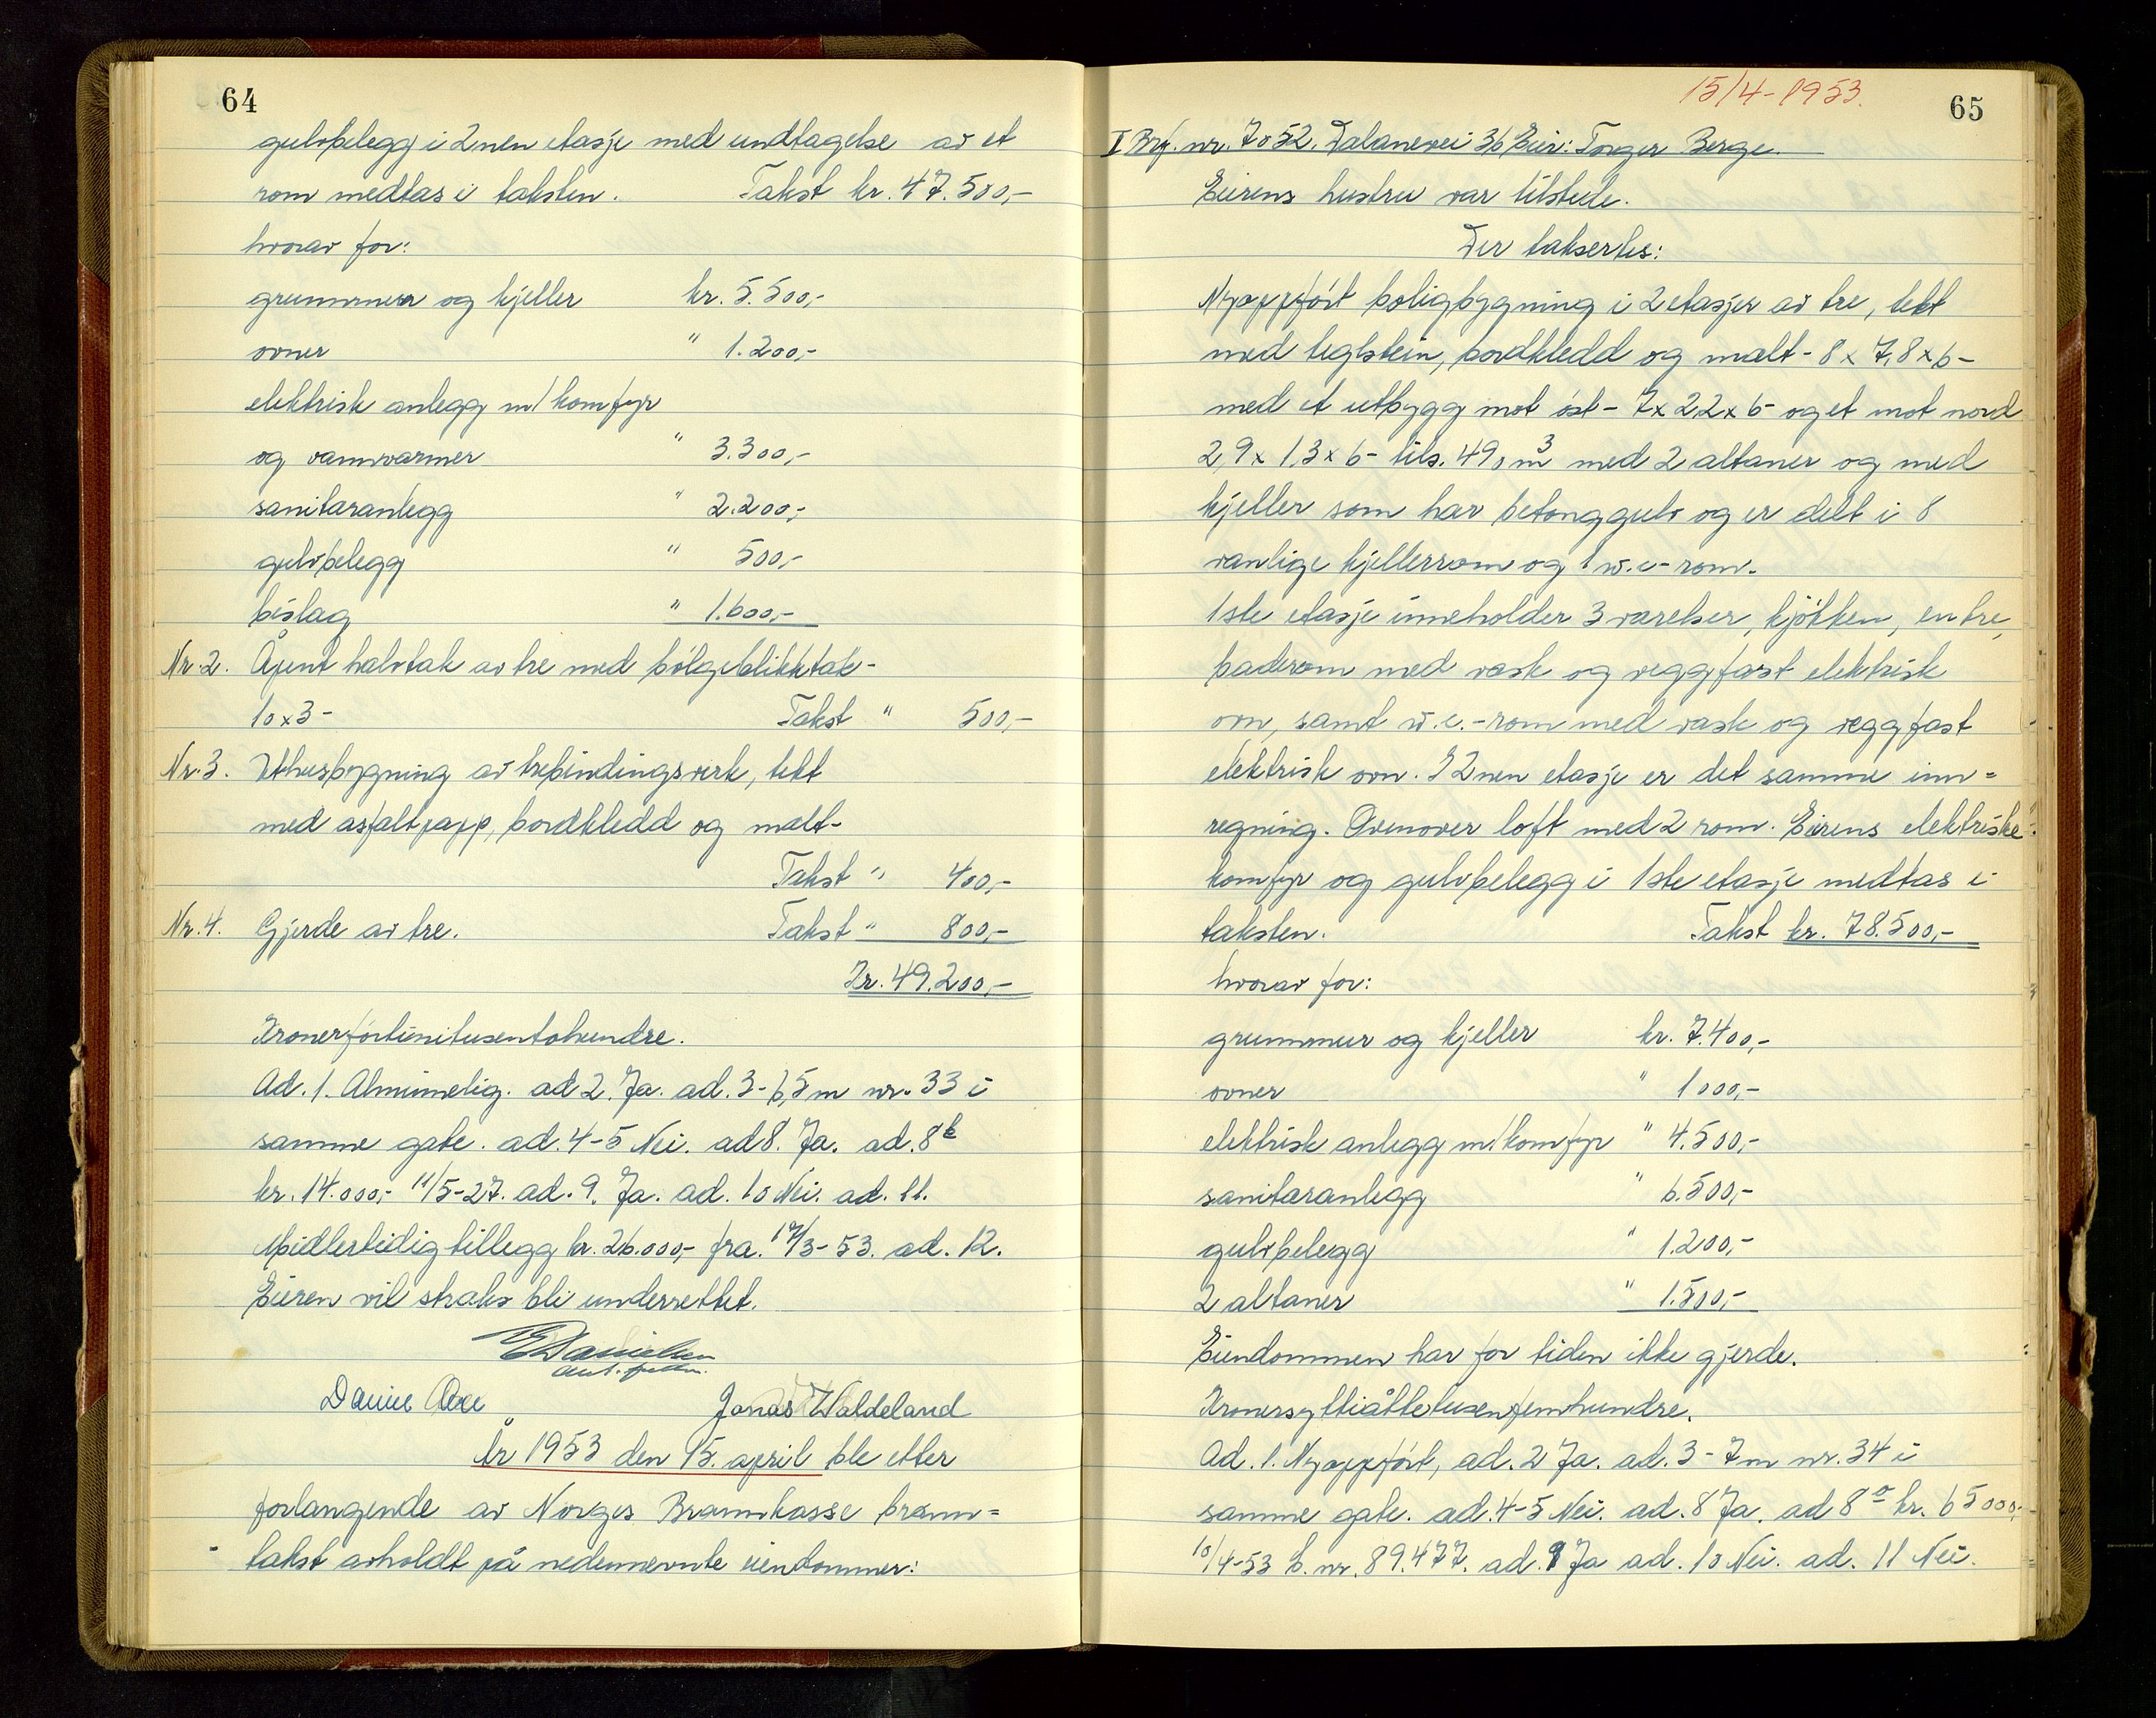 64
gulvbelegg i 2nen etasje med undtagelse av et
rom medtas i taksten. Takst kr. 47.500,-
hvorav for:
grunnmur og kjeller kr. 5.500,-
ovner " 1.200,-
elektrisk anlegg m/komfyr
og vannvarmer " 3.300,-
sanitæranlegg " 2.200,-
gulvbelegg " 500,-
bislag " 1.600,-
Nr. 2. Åpent halvtak av tre med bølgeblikktak-
10x3- Takst " 500,-
Nr. 3. Uthusbygning av trebindingsverk, tekt
med asfaltpapp, bordkledd og malt-
Takst " 400,-
Nr. 4. Gjerde av tre. Takst " 800,-
Kr. 49.200,-
Kronerførtinitusentohundre.
Ad. 1. Almimelig. ad 2. Ja. ad. 3- 6,5 m nr. 33 i
samme gate. ad. 4-5 Nei. ad 8. Ja. ad. 8b
kr. 14.000,- 11/5-27. ad. 9. Ja. ad. 10 Nei. ad. 11.
Midlertidig tillegg kr. 26.000,- fra. /3-53. ad. 12.
Eieren vil straks bli underrettet.
EDanielsen
Jonas Waldeland
År 1953 den 15. april ble etter
forlangende av Norges Brannkasse brann=
takst avholdt på nedennevnte eiendommer:
15/4-1953.
65
I Brf. nr. 7052. Dalanevei 36 Eier: Torger Berge.
Eierens hustru var tilstede.
Der taksertes:
Nyoppført boligbygning i 2 etasjer av tre, tekt
med teglstein, bordkledd og malt- 8 x 7,8 x 6-
med et utbygg mot øst- 7x 2,2 x 6- og et mot nord
2,9 x 1,3 x 6- tils. 490 m3 med 2 altaner og med
kjeller som har betonggulv og er delt i 8
vanlige kjellerrom og 1 w.c-rom.
1ste etasje inneholder 3 værelser, kjøkken, entre,
baderom med vask og veggfast elektrisk
ovn, samt w.c.-rom med vask og veggfast
elektrisk ovn. I 2nen etasje er det samme inn=
regning. Ovenover loft med 2 rom. Eierens elektriske
komfyr og gulvbelegg i 1ste etasje medtas i
taksten. Takst kr. 78.500,-
hvorav for:
grunnmur og kjeller kr. 7.400,-
ovner " 1000,-
elektrisk anlegg m/komfyr " 4.500,-
sanitæranlegg " 6.500,-
gulvbelegg " 1.200,-
2 altaner " 1.500,-
Eiendommen har for tiden ikke gjerde.
Kronersyttiåttetusenfemhundre.
Ad. 1. Nyoppført, ad. 2 Ja. ad. 3- 7 m nr. 34 i
samme gate. ad. 4-5 Nei. ad. 8 Ja. ad 8a kr. 65000,-
10/4-53 L. nr. 89.477. ad. 9 Ja ad. 10 Nei. ad. 11 Nei.